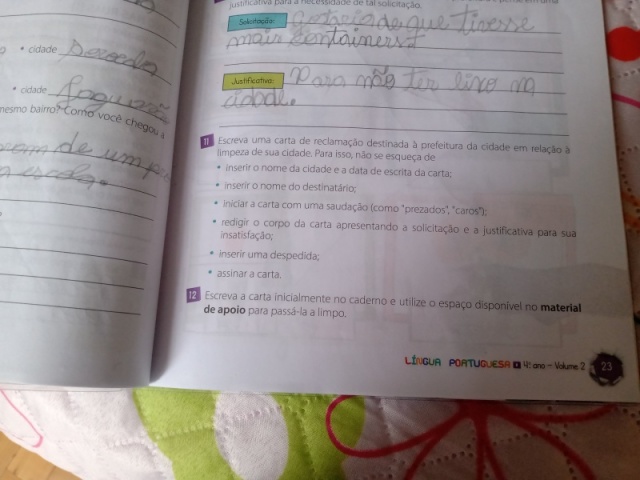 justificativa para a necessidade de tal solicitação.
Solicitação: gostaria de que tivesse
mais containers
Justificativa: Para não ter lixo na
cidade.
• cidade
• cidade
mesmo bairro? Como você chegou à
de um
escola.
11 Escreva uma carta de reclamação destinada à prefeitura da cidade em relação à
limpeza de sua cidade. Para isso, não se esqueça de
• inserir o nome da cidade e a data de escrita da carta;
• inserir o nome do destinatário;
• iniciar a carta com uma saudação (como "prezados", "caros");
• redigir o corpo da carta apresentando a solicitação e a justificativa para sua
insatisfação;
• inserir uma despedida;
• assinar a carta.
12 Escreva a carta inicialmente no caderno e utilize o espaço disponível no material
de apoio para passá-la a limpo.
LÍNGUA PORTUGUESA 4º. ano – Volume 2 23